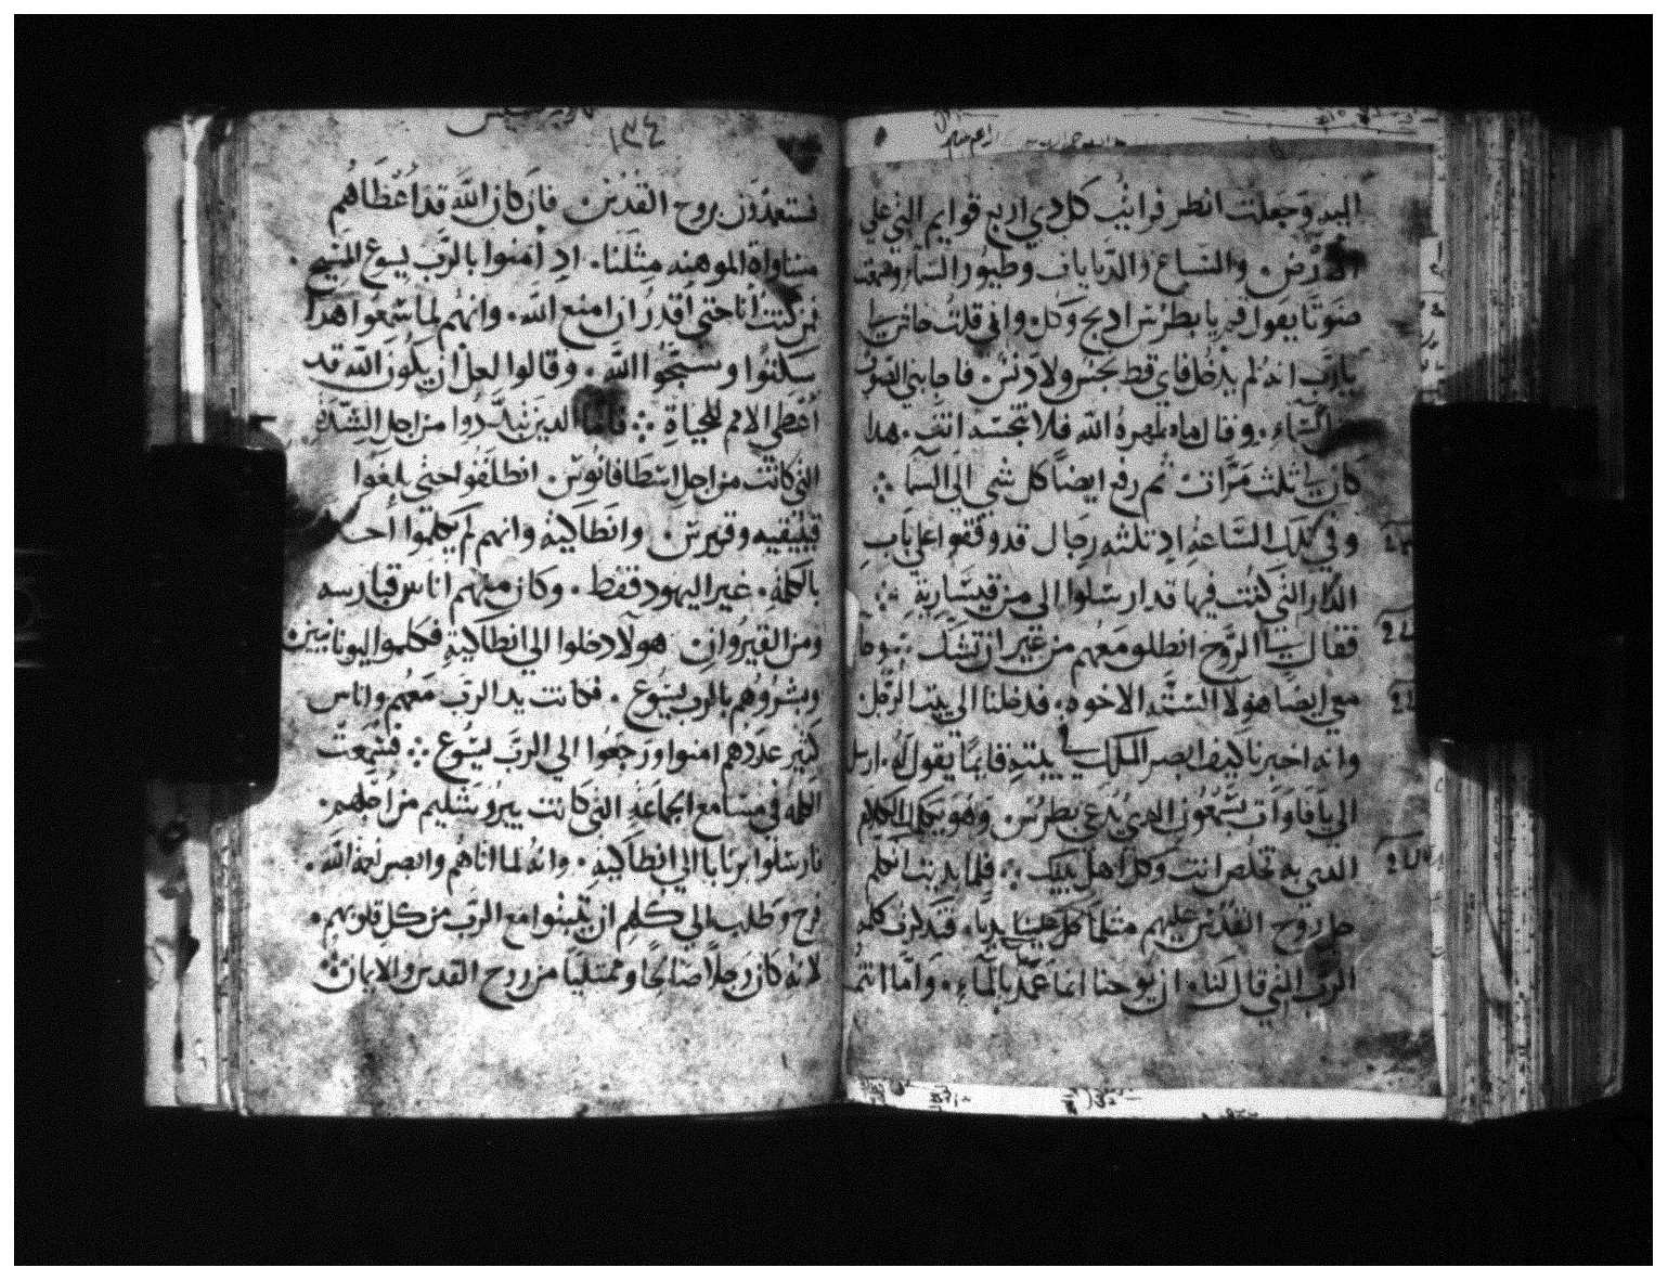 اليه وجعلت انظر فرايت كل دي اربع قوايم التي علي
الارض. والسباع والدبابات وطيور السماء وسمعت
صوتا يقول لي يا بطرس ادبح وكل. واني قلت حاش لي
يارب انه لم يدخل فاي قط نجس ولا دنس. فاجابني الصوت
السماء. وقال ماطهره الله فلا تنجسه انت. هدا
كان ثلث مرات ثم رفع ايضا كل شي الي السما
وفي تلك الساعه اد ثلثه رجال قد وقفوا علي باب
الدار التي كنت فيها قد ارسلوا الي من قيساريه
فقال لي الروح انطلق معهم من غير ان تشك
معي ايضا هولا السته الاخوه. فدخلنا الي بيت الرجل
وانه اخبرنا كيف ابصر الملك في بيته قايما يقول له. ارسل
الي يافا وات بشمعون الدي يدعي بطرس. وهو يكلمك الكلام
الدي به تخلص انت وكل اهل بيتك. فلما بديت اتكلم
حل روح القدس عليهم مثلما حل علينا بديا. فتدكرت كلمة
الرب التي قال لنا. ان يوحنا انما عمد بالماء. واما انتم
١٣٤
فستعمدون بروح القدس. فان كان الله قد اعطاهم
مساواة الموهبه مثلنا. اد امنوا بالرب يسوع المسيح.
فمن كنت انا حتي اقدر ان امنع الله. وانهم لما سمعوا هدا
سكتوا وسبحوا الله. وقالوا لعل ان يكون الله قد
اعطي الامم للحياة فاما الدين تبددوا من اجل الشدة
التي كانت من اجل اسطافانوس. انطلقوا حتي بلغوا
فينيقيه وقبرس. وانطاكيه وانهم لم يكلموا احد
بالكلمه. غير اليهود فقط. وكان منهم اناس قبارسه
ومن القيروان. هولا دخلوا الي انطاكية فكلموا اليونانيين
وبشروهم بالرب يسوع. فكانت يد الرب معهم واناس
كثير عددهم امنوا ورجعوا الي الرب يسوع فسمعت
الكلمه في مسامع الجماعه التي كانت بيروشليم من اجلهم.
فارسلوا برنابا الي انطاكيه. وانه لما اتاهم وابصر نعمة الله.
فرح وطلب الي كلهم ان يثبتوا مع الرب من كل قلوبهم.
لانه كان رجلا صالحا وممتليا من روح القدس والايمان